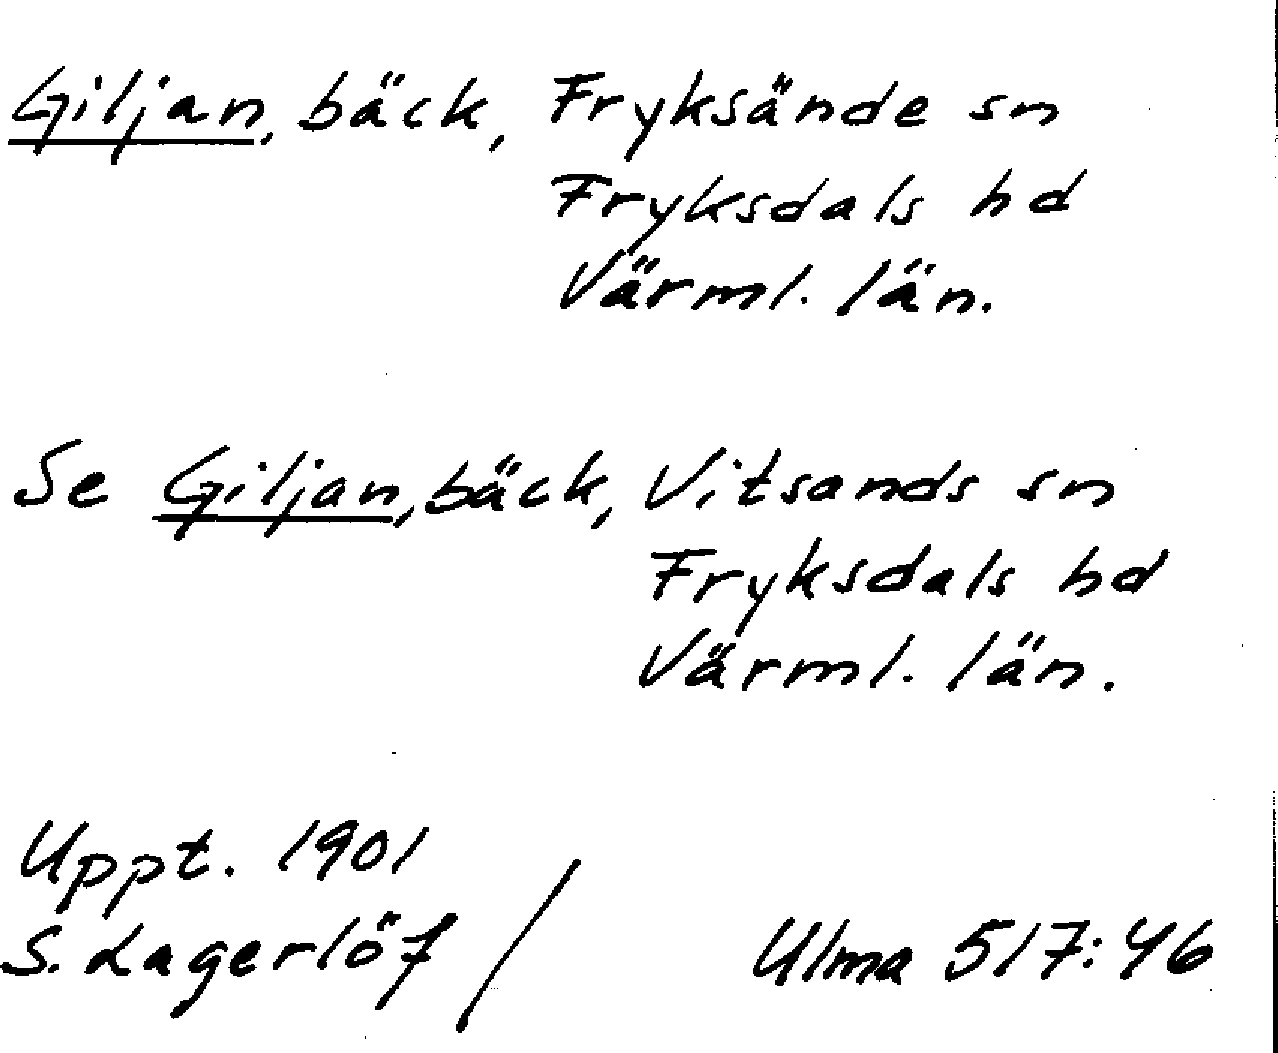 Giljan, bäck, Fryksände sn
Fryksdals hd
Värml. län.
Se Giljan, bäck, Vitsands sn
Fryksdals hd
Värml. län.
Uppt. 1901
S. Lagerlöf / Ulma 517:46